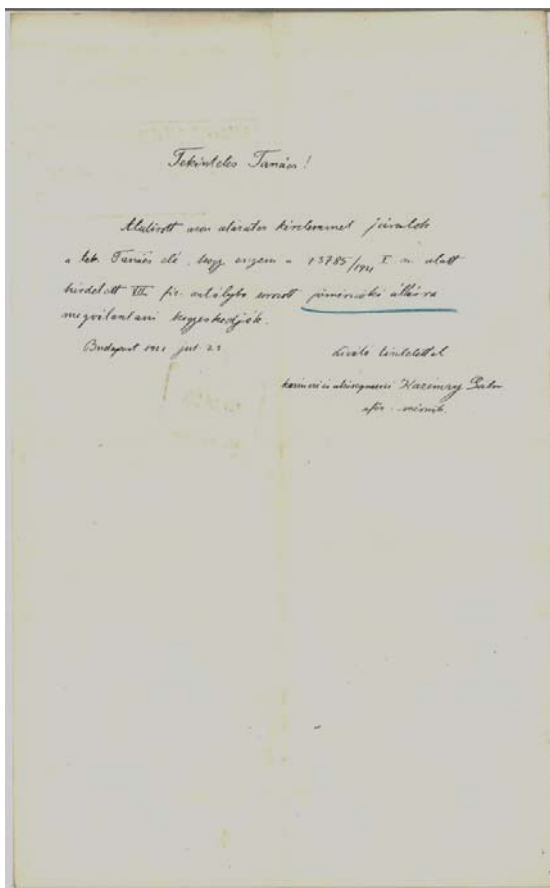 Tekintetes Tanács!
Alulírott azon alázatos kérelemmel járulok
a tek. Tanács elé, hogy engem a 13785/1921 I. n. alatt
hirdetett VII. fiz. osztályba sorozott főmérnöki állásra
megválasztani kegyeskedjék.
Budapest 1921 júl. 23
Kiváló tisztelettel
Kazinczy Gábor
mérnök.